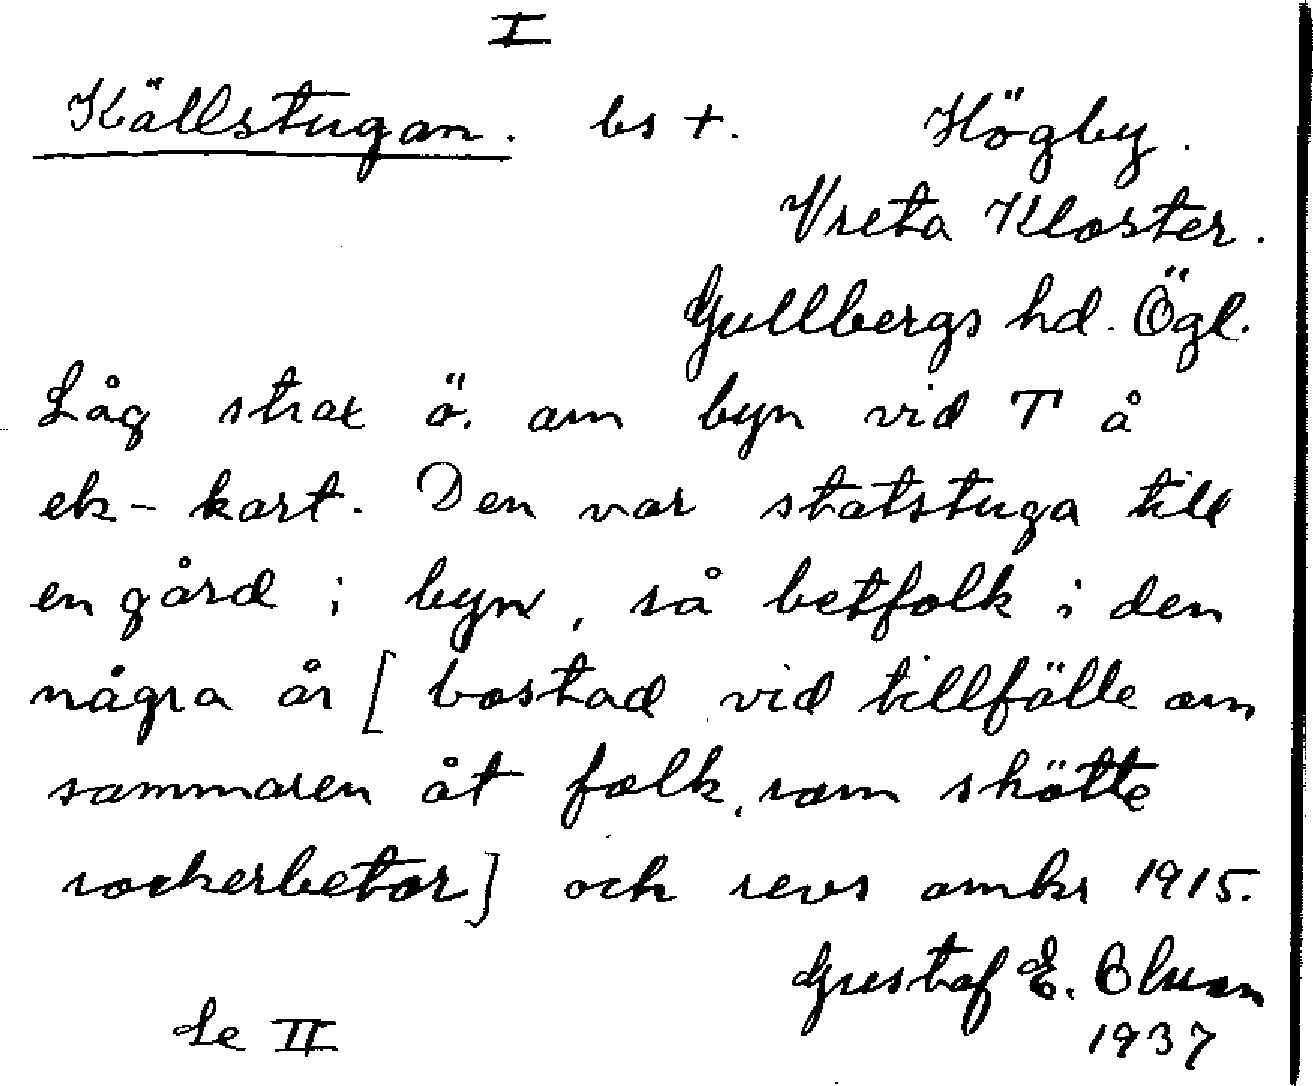 I
Källstugan. bs +. Högby.
Vreta Kloster.
Gullbergs hd. Ögl.
Låg strax ö. om byn vid T å
ek-kart. Den var statstuga till
en gård i byn, så betfolk i den
några år [bostad vid tillfälle om
sommaren åt folk, som skötte
sockerbetor] och revs omkr 1915.
Gustaf E. Olsson
1937
Se II